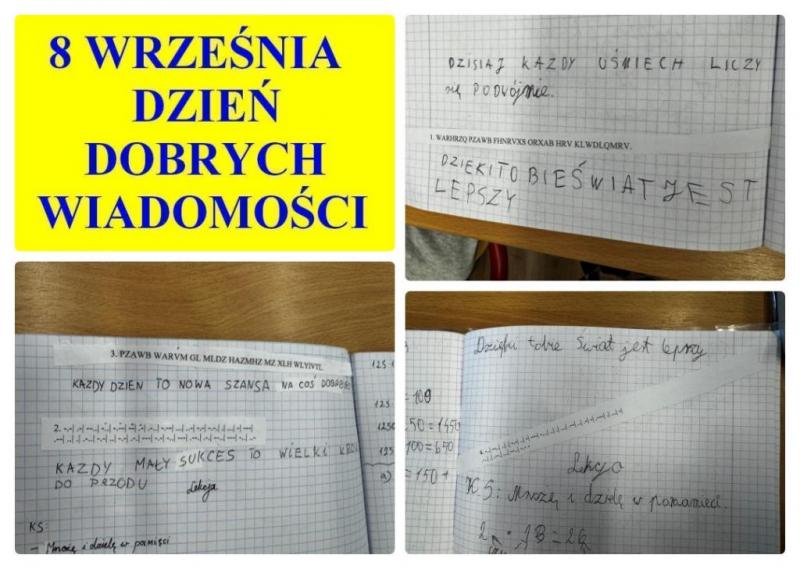 8 WRZEŚNIA
DZIEŃ
DOBRYCH
WIADOMOŚCI
DZISIAJ KAZDY UŚMIECH LICZY
się PODWÓJNIE.
1. WARHRZQ PZAWB FHNRVXS ORXAB HRV KLWDLQMRV.
DZIEKITOBIEŚWIATJEST
LEPSZY
3. PZAWB WARVM GL MLDZ HAZMHZ MZ XLH WLYIVTL
KAZDY DZIEN TO NOWA SZANSA NA COŚ
2.
KAZDY MAŁY SUKCES TO WIELKI
DO PRZODU
Lekcja
KS:
- Mnożę i dzielę w pamięci
125
125
1250
125
Dzięki tobie Świat jest lepszy
= 100
50 = 1450
100 = 650
= 150 +
Lekcja
KS: Mnożę i dzielę w pamięci.
2 · 13 = 26